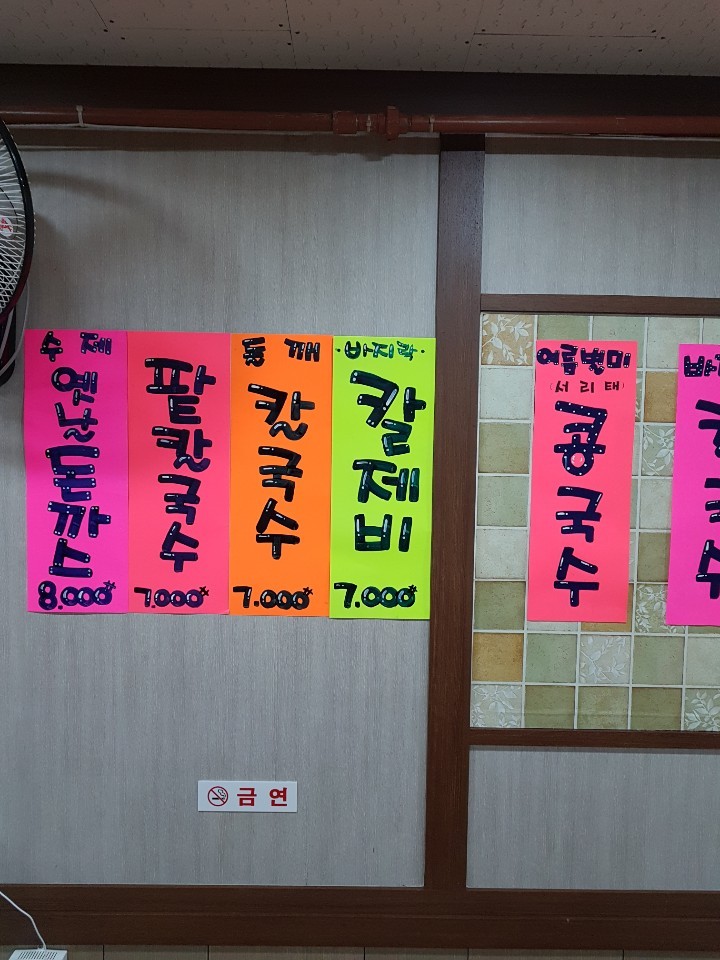 수제
옛날돈까스
8.000
팥칼국수
7.000
들깨
칼국수
7.000
바지락
칼제비
7.000
여름별미
(서리태)
콩국수
금연